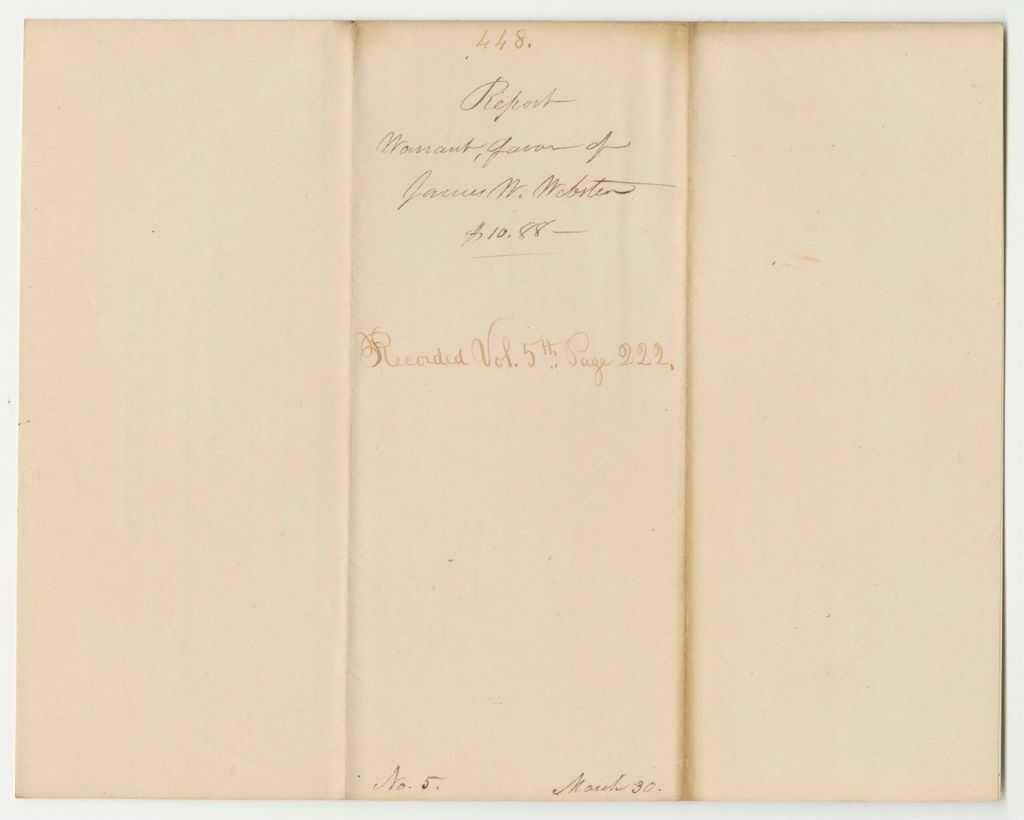 448.
Report
Warrant, favor of
James W. Webster
$10.88 —
Recorded Vol. 5th. Page 222.
No. 5. March 30.